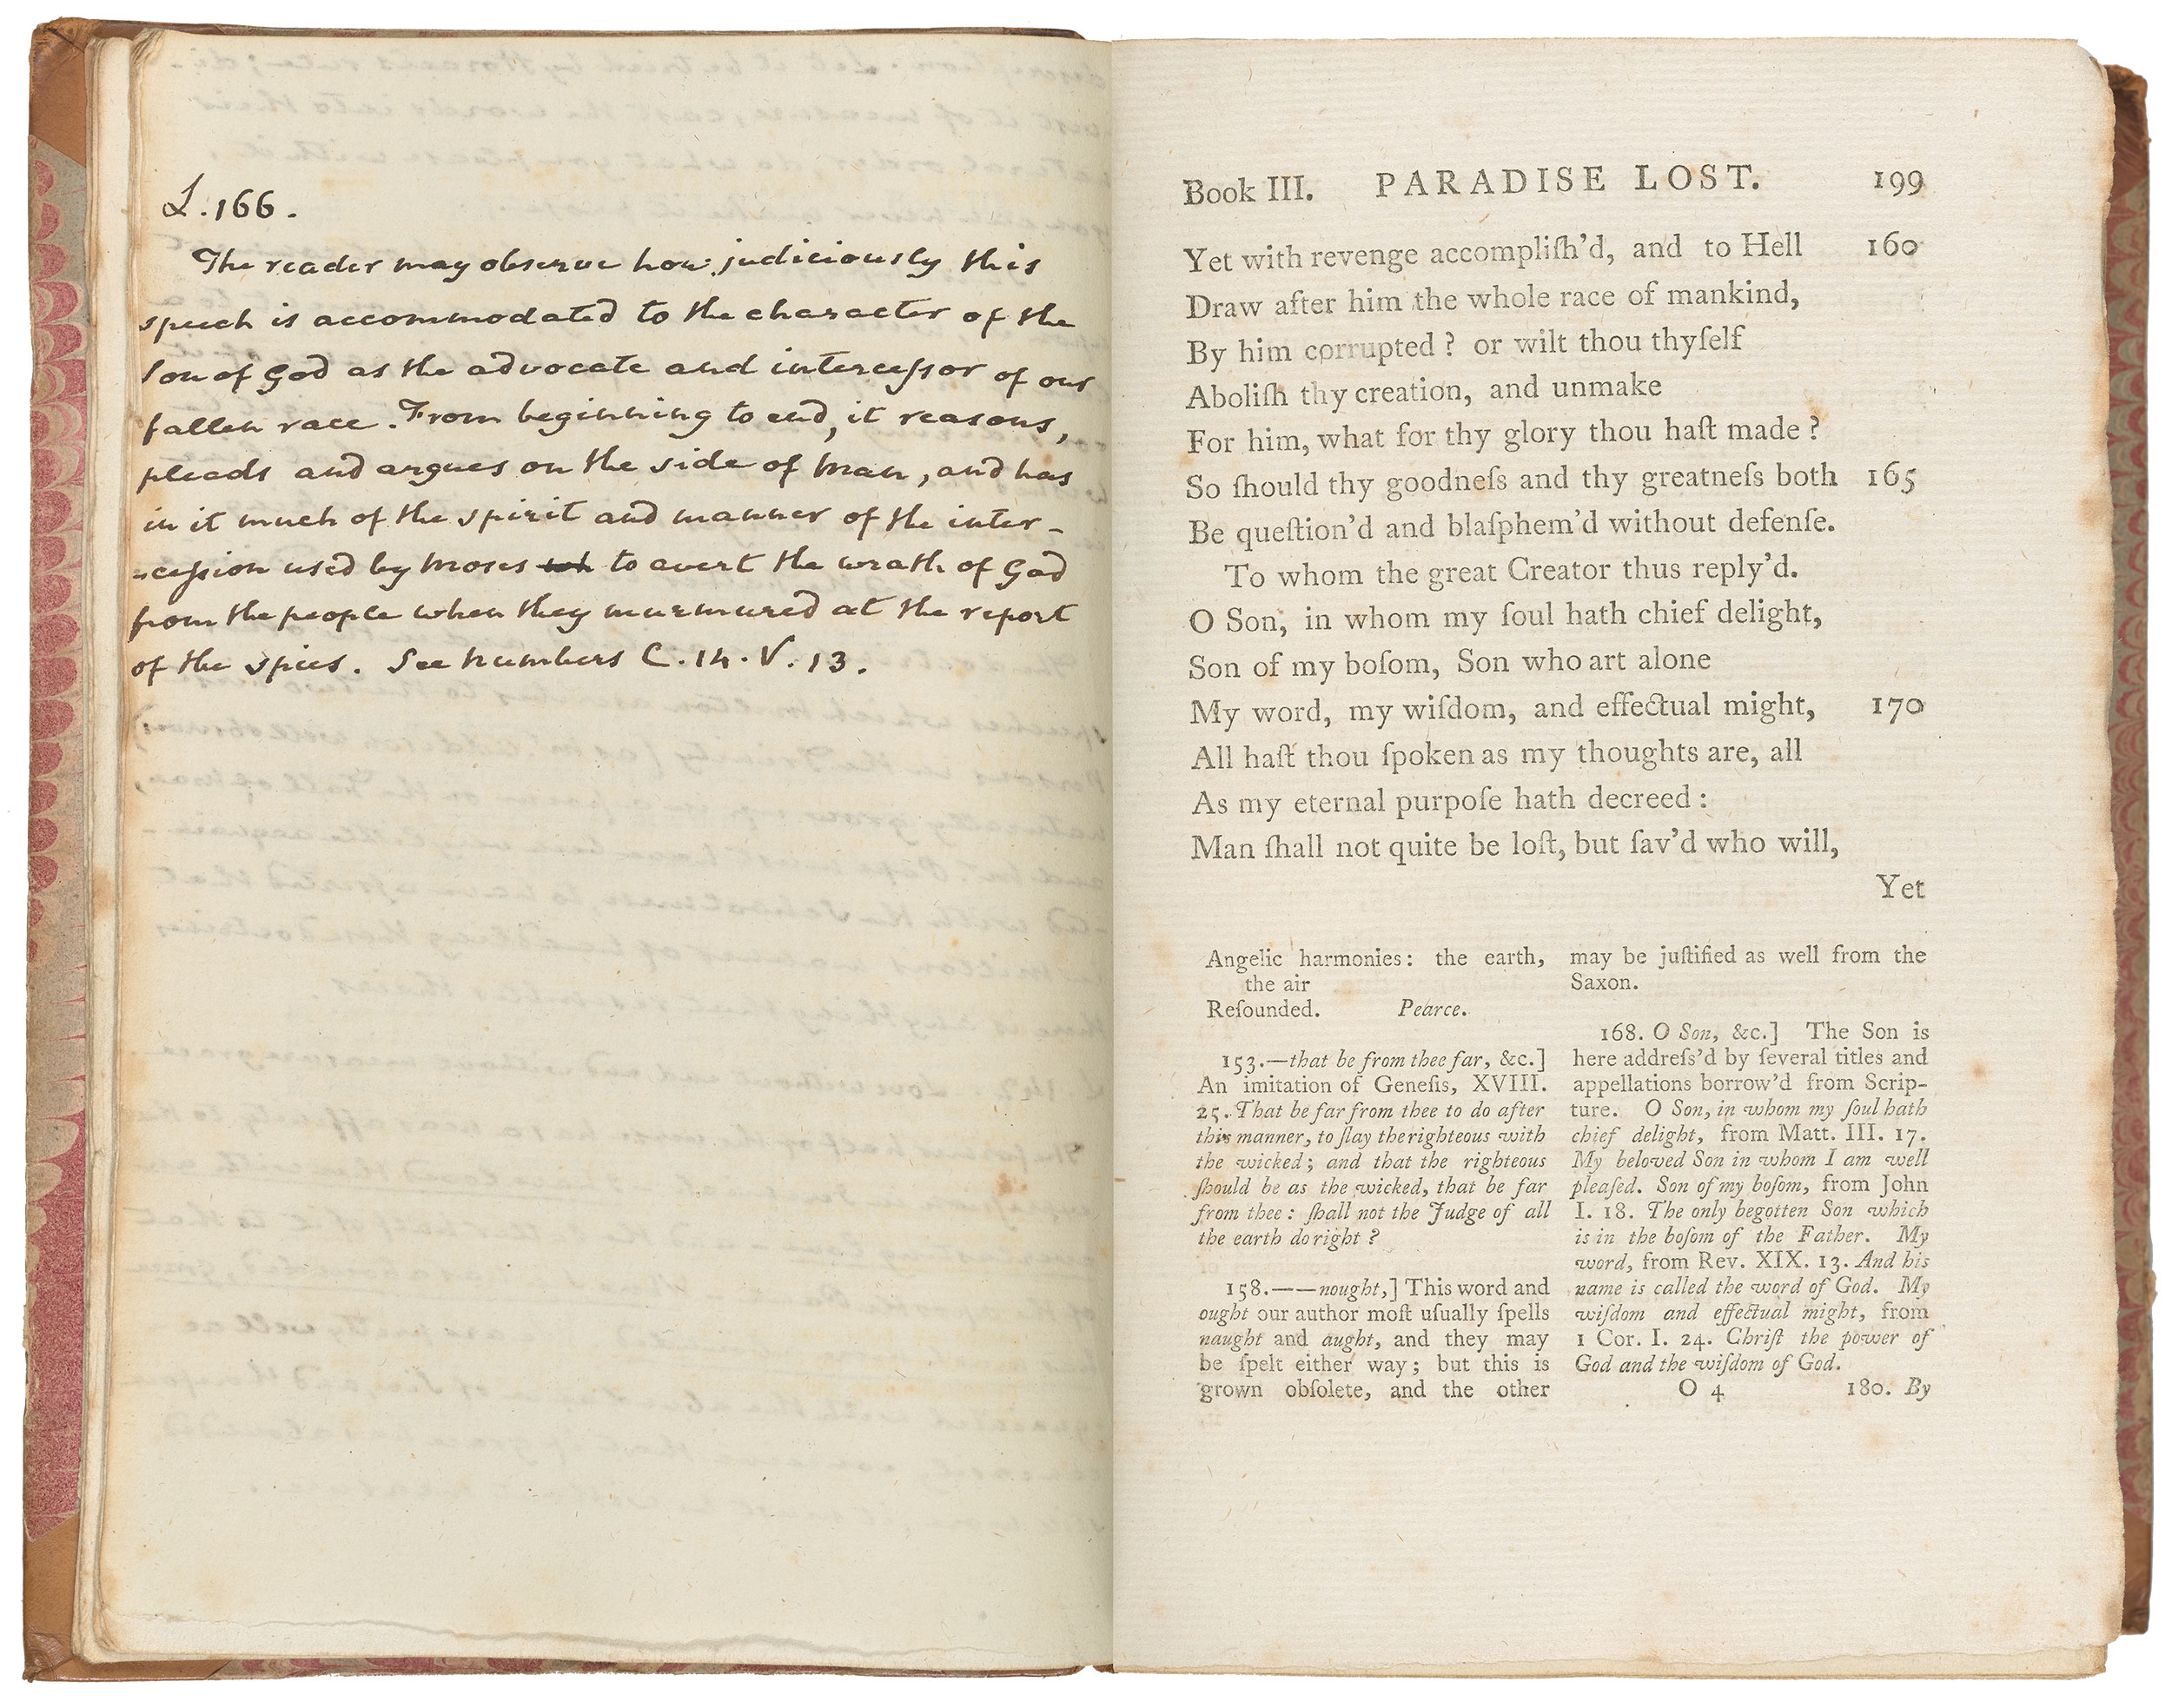 L.166.
The reader may observe how judiciously this
speech is accommodated to the character of the
Son of God as the advocate and intercessor of our
fallen race. From beginning to end, it reasons,
pleads and argues on the side of Man, and has
in it much of the spirit and manner of the inter-
-cession used by Moses wh to avert the wrath of God
from the people when they murmured at the report
of the spies. See Numbers C.14.V.13.
Book III. PARADISE LOST. 199
Yet with revenge accompliſh'd, and to Hell 160
Draw after him the whole race of mankind,
By him corrupted? or wilt thou thyſelf
Aboliſh thy creation, and unmake
For him, what for thy glory thou haſt made?
So ſhould thy goodneſs and thy greatneſs both 165
Be queſtion'd and blaſphem'd without defenſe.
To whom the great Creator thus reply'd.
O Son, in whom my ſoul hath chief delight,
Son of my boſom, Son who art alone
My word, my wiſdom, and effectual might, 170
All haſt thou ſpoken as my thoughts are, all
As my eternal purpoſe hath decreed:
Man ſhall not quite be loſt, but ſav'd who will,
Yet
Angelic harmonies: the earth,
the air
Reſounded. Pearce.
153.—that be from thee far, &c.]
An imitation of Geneſis, XVIII.
25. That be far from thee to do after
this manner, to ſlay the righteous with
the wicked; and that the righteous
ſhould be as the wicked, that be far
from thee: ſhall not the Judge of all
the earth do right?
158.——nought,] This word and
ought our author moſt uſually ſpells
naught and aught, and they may
be ſpelt either way; but this is
grown obſolete, and the other
may be juſtified as well from the
Saxon.
168. O Son, &c.] The Son is
here addreſs'd by ſeveral titles and
appellations borrow'd from Scrip-
ture. O Son, in whom my ſoul hath
chief delight, from Matt. III. 17.
My beloved Son in whom I am well
pleaſed. Son of my boſom, from John
I. 18. The only begotten Son which
is in the boſom of the Father. My
word, from Rev. XIX. 13. And his
name is called the word of God. My
wiſdom and effectual might, from
1 Cor. I. 24. Chriſt the power of
God and the wiſdom of God.
O 4 180. By